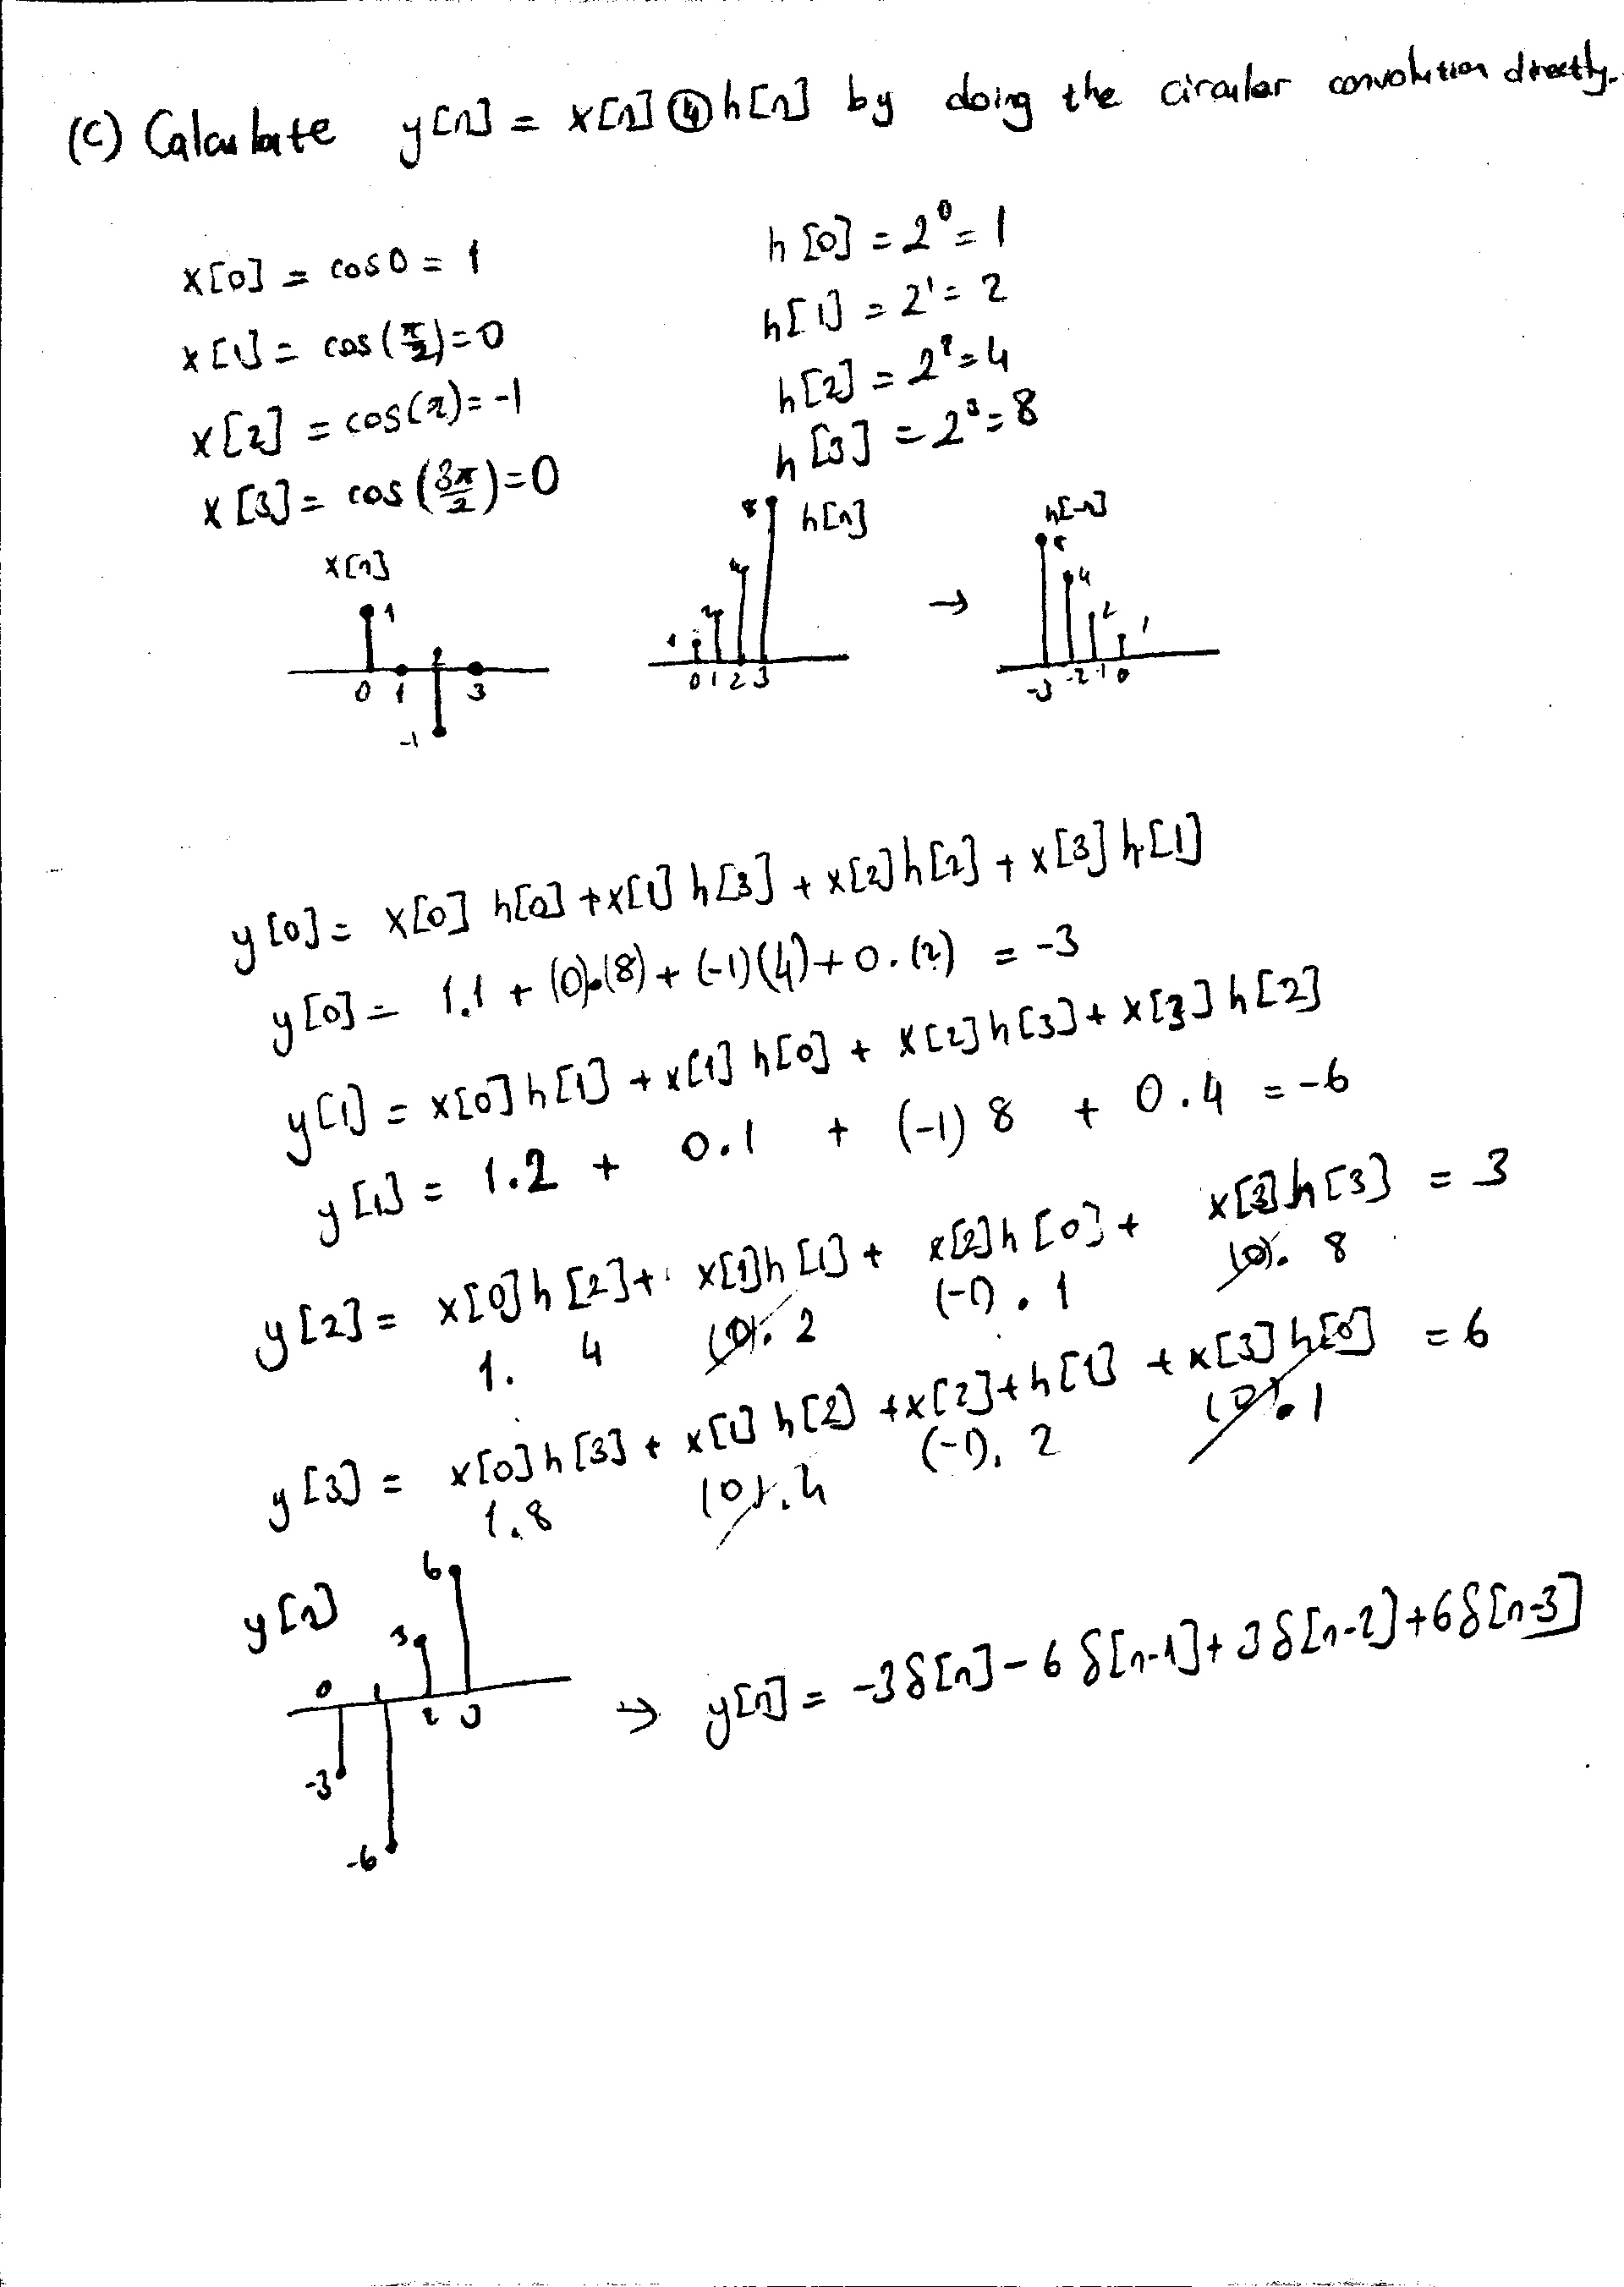 (c) Calculate y[n] = x[n] ④ h[n] by doing the circular convolution directly.
x[0] = cos 0 = 1
h[0] = 2⁰ = 1
x[1] = cos(π/2) = 0
h[1] = 2¹ = 2
x[2] = cos(π) = -1
h[2] = 2² = 4
x[3] = cos(3π/2) = 0
h[3] = 2³ = 8
x[n]
1
0 1 3
-1
8 h[n]
4
2
1
0 1 2 3
→
h[-n]
8
4
2
1
-3 -2 -1 0
y[0] = x[0] h[0] + x[1] h[3] + x[2] h[2] + x[3] h[1]
y[0] = 1.1 + (0).(8) + (-1)(4) + 0.(2) = -3
y[1] = x[0] h[1] + x[1] h[0] + x[2] h[3] + x[3] h[2]
y[1] = 1.2 + 0.1 + (-1) 8 + 0.4 = -6
y[2] = x[0] h[2] + x[1] h[1] + x[2] h[0] + x[3] h[3] = 3
1. 4 (0). 2 (-1) . 1 (0). 8
y[3] = x[0] h[3] + x[1] h[2] + x[2] + h[1] + x[3] h[0] = 6
1.8 (0).4 (-1). 2 (0).1
y[n]
6
3
0 1 2 3
-3
-6
→ y[n] = -3δ[n] - 6 δ[n-1] + 3 δ[n-2] + 6 δ[n-3]